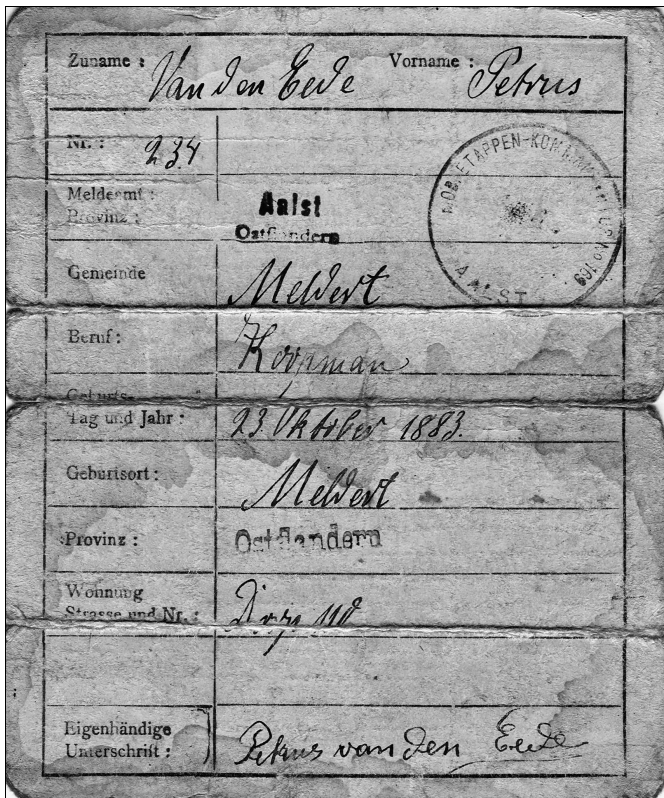 Zuname : Van den Eede Vorname : Petrus
Nr. : 234
MOB. ETAPPEN-KOMMAN
AALST
Meldeamt : Aalst
Provinz : Ostflandern
Gemeinde Meldert
Beruf : Koopman
Geburts-
Tag und Jahr : 23 Oktober 1883.
Geburtsort : Meldert
Provinz : Ostflandern
Wohnung
Strasse und Nr. : Dorp
Eigenhändige
Unterschrift : Petrus van den Eede